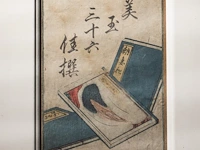 美玉三十六佳撰